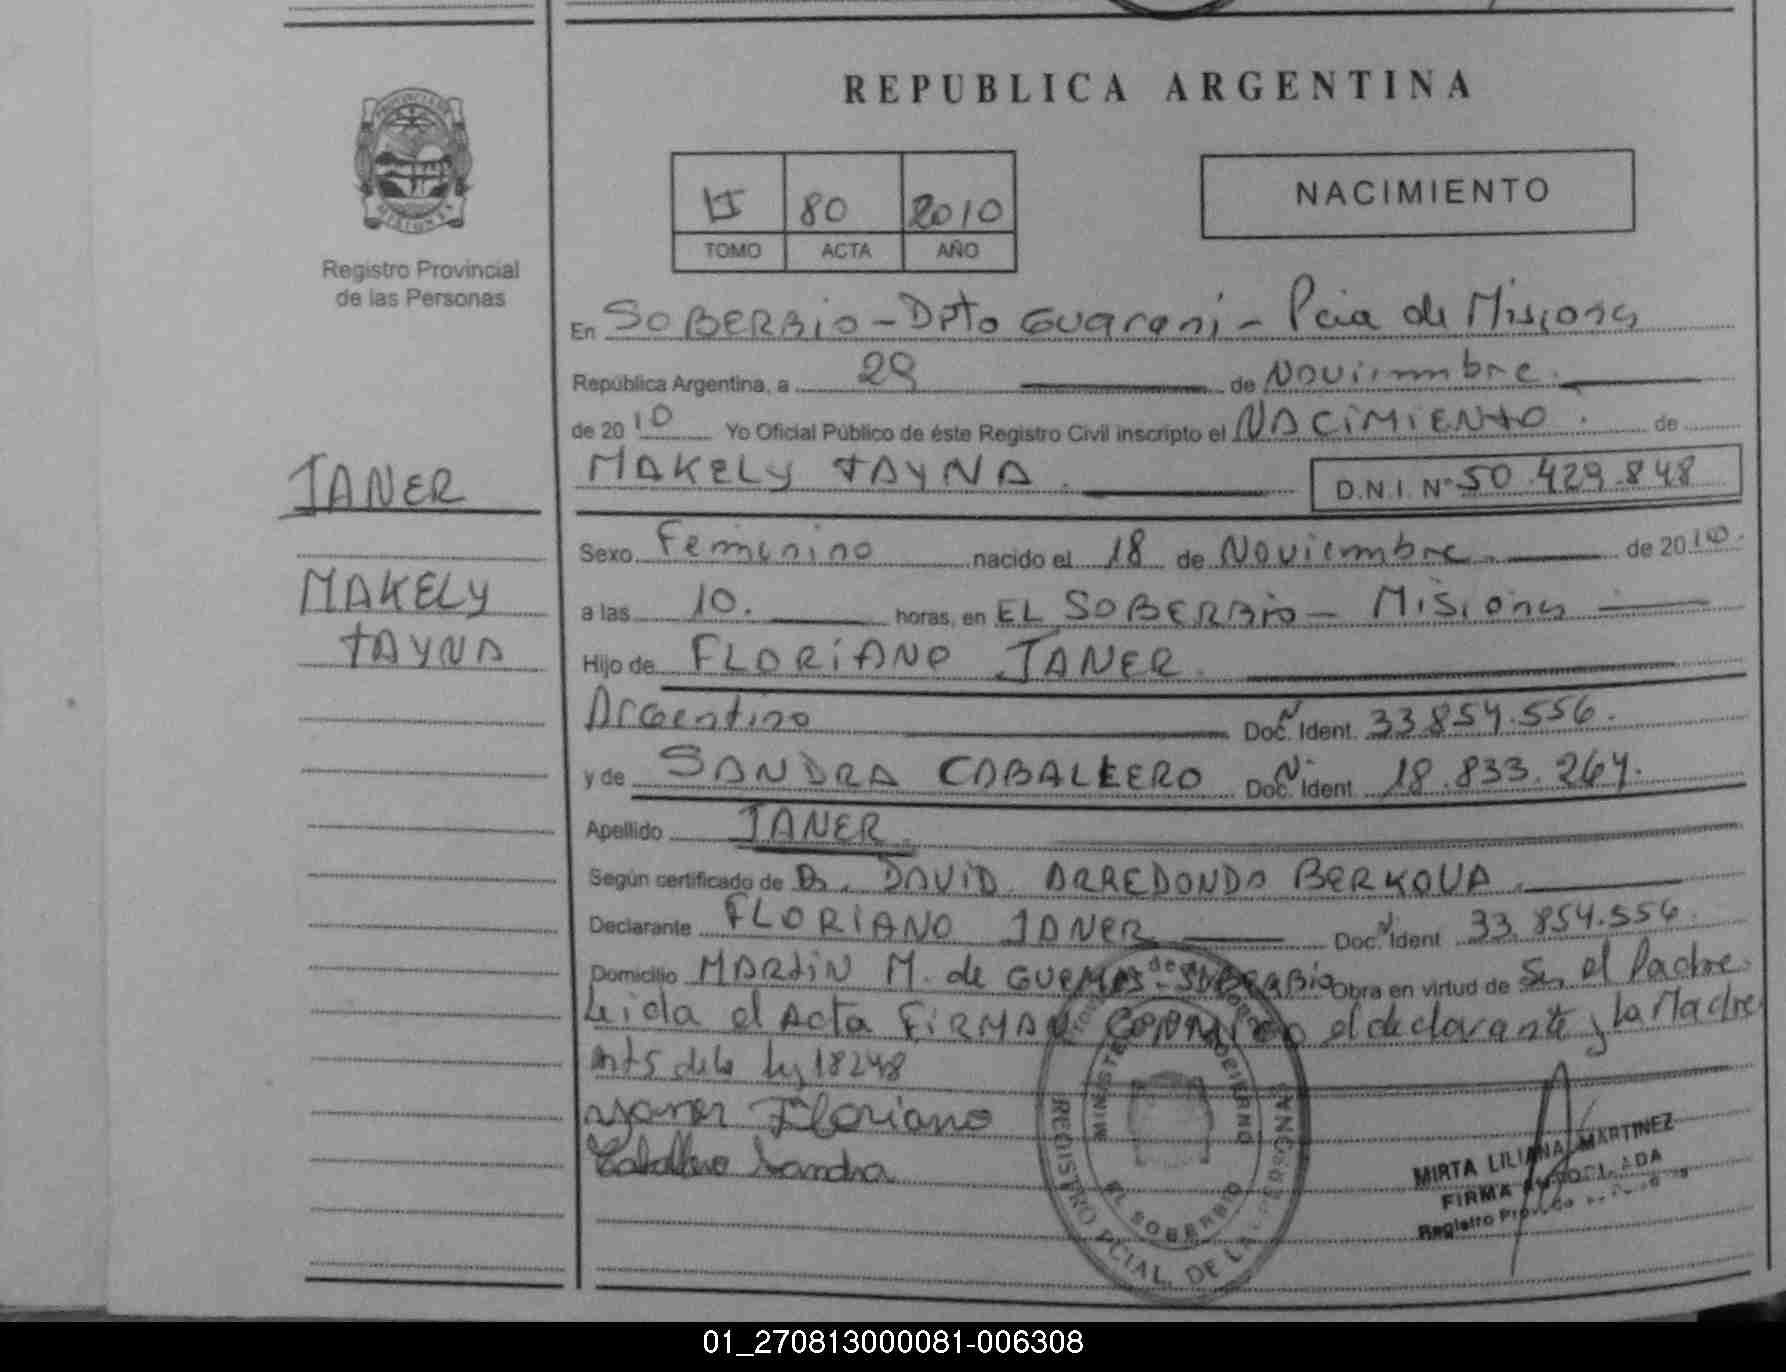 REPUBLICA ARGENTINA
PROVINCIA DE
MISIONES
Registro Provincial
de las Personas
II 80 2010
TOMO ACTA AÑO
NACIMIENTO
En SOBERBIO - Dpto Guarani - Pcia de Misiones
República Argentina, a 29 de Noviembre
de 2010 Yo Oficial Público de éste Registro Civil inscripto el NACIMIENTO de
MAKELY TAYNA D.N.I. Nº 50.429.848
JANER
MAKELY
TAYNA
Sexo Femenino nacido el 18 de Noviembre de 2010.
a las 10. horas, en EL SOBERBIO - Misiones
Hijo de FLORIANO JANER
Argentino Doc. Nº Ident. 33.854.556.
y de SANDRA CABALLERO Doc. Nº Ident 18.833.264.
Apellido JANER
Según certificado de Dr. DAVID ARREDONDO BERKOVA
Declarante FLORIANO JANER Doc. Nº Ident 33.854.556.
Domicilio MARTIN M. de GUEMES - SOBERBIO Obra en virtud de Ser el Padre.
Leida el Acta FIRMAN CONMIGO el declarante y la Madre
Art 5 de la ley 18248
Yaner Floriano
Caballero Sandra
MINISTERIO DE GOBIERNO
REGISTRO PCIAL. DE LAS PERSONAS
EL SOBERBIO
MIRTA LILIANA MARTINEZ
FIRMA AUTORIZADA
Registro
01_270813000081-006308